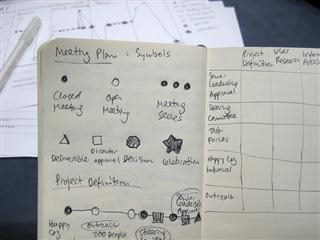 Meeting Plan: Symbols
Closed Meeting
Open Meeting
Meeting Series
Deliverable
Director approval
Decision
Celebration
Project Definition
Senior Leadership Approval
Happy Cog
Outreach 200 people
Steering
Project Definition
User Research
Inform
Senior Leadership Approval
Steering Committee
Task Forces
Happy Cog Internal
Outreach